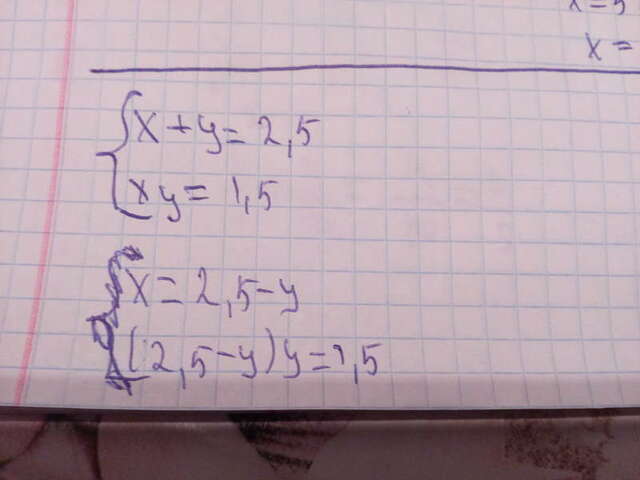 x =
x + y = 2,5
xy = 1,5
x = 2,5 - y
(2,5 - y) y = 1,5